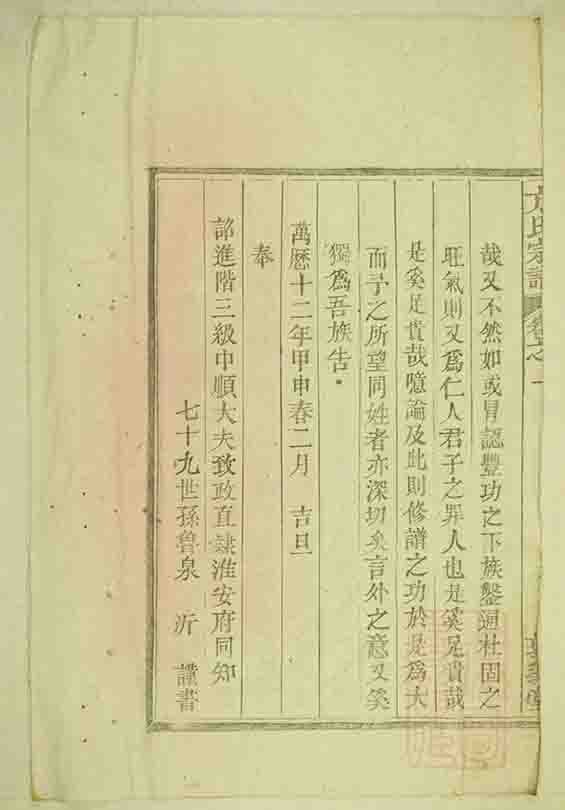 氏宗譜 卷之一
哉又不然如或冒認豐功之下族鑿通杜固之
旺氣則又爲仁人君子之罪人也是奚足貴哉
是奚足貴哉噫論及此則修譜之功於是爲大
而予之所望同姓者亦深切矣言外之意又奚
獨爲吾族告
萬曆十二年甲申春二月 吉旦
奉
詔進階三級中順大夫致政直隸淮安府同知
七十九世孫魯泉 沂 謹書